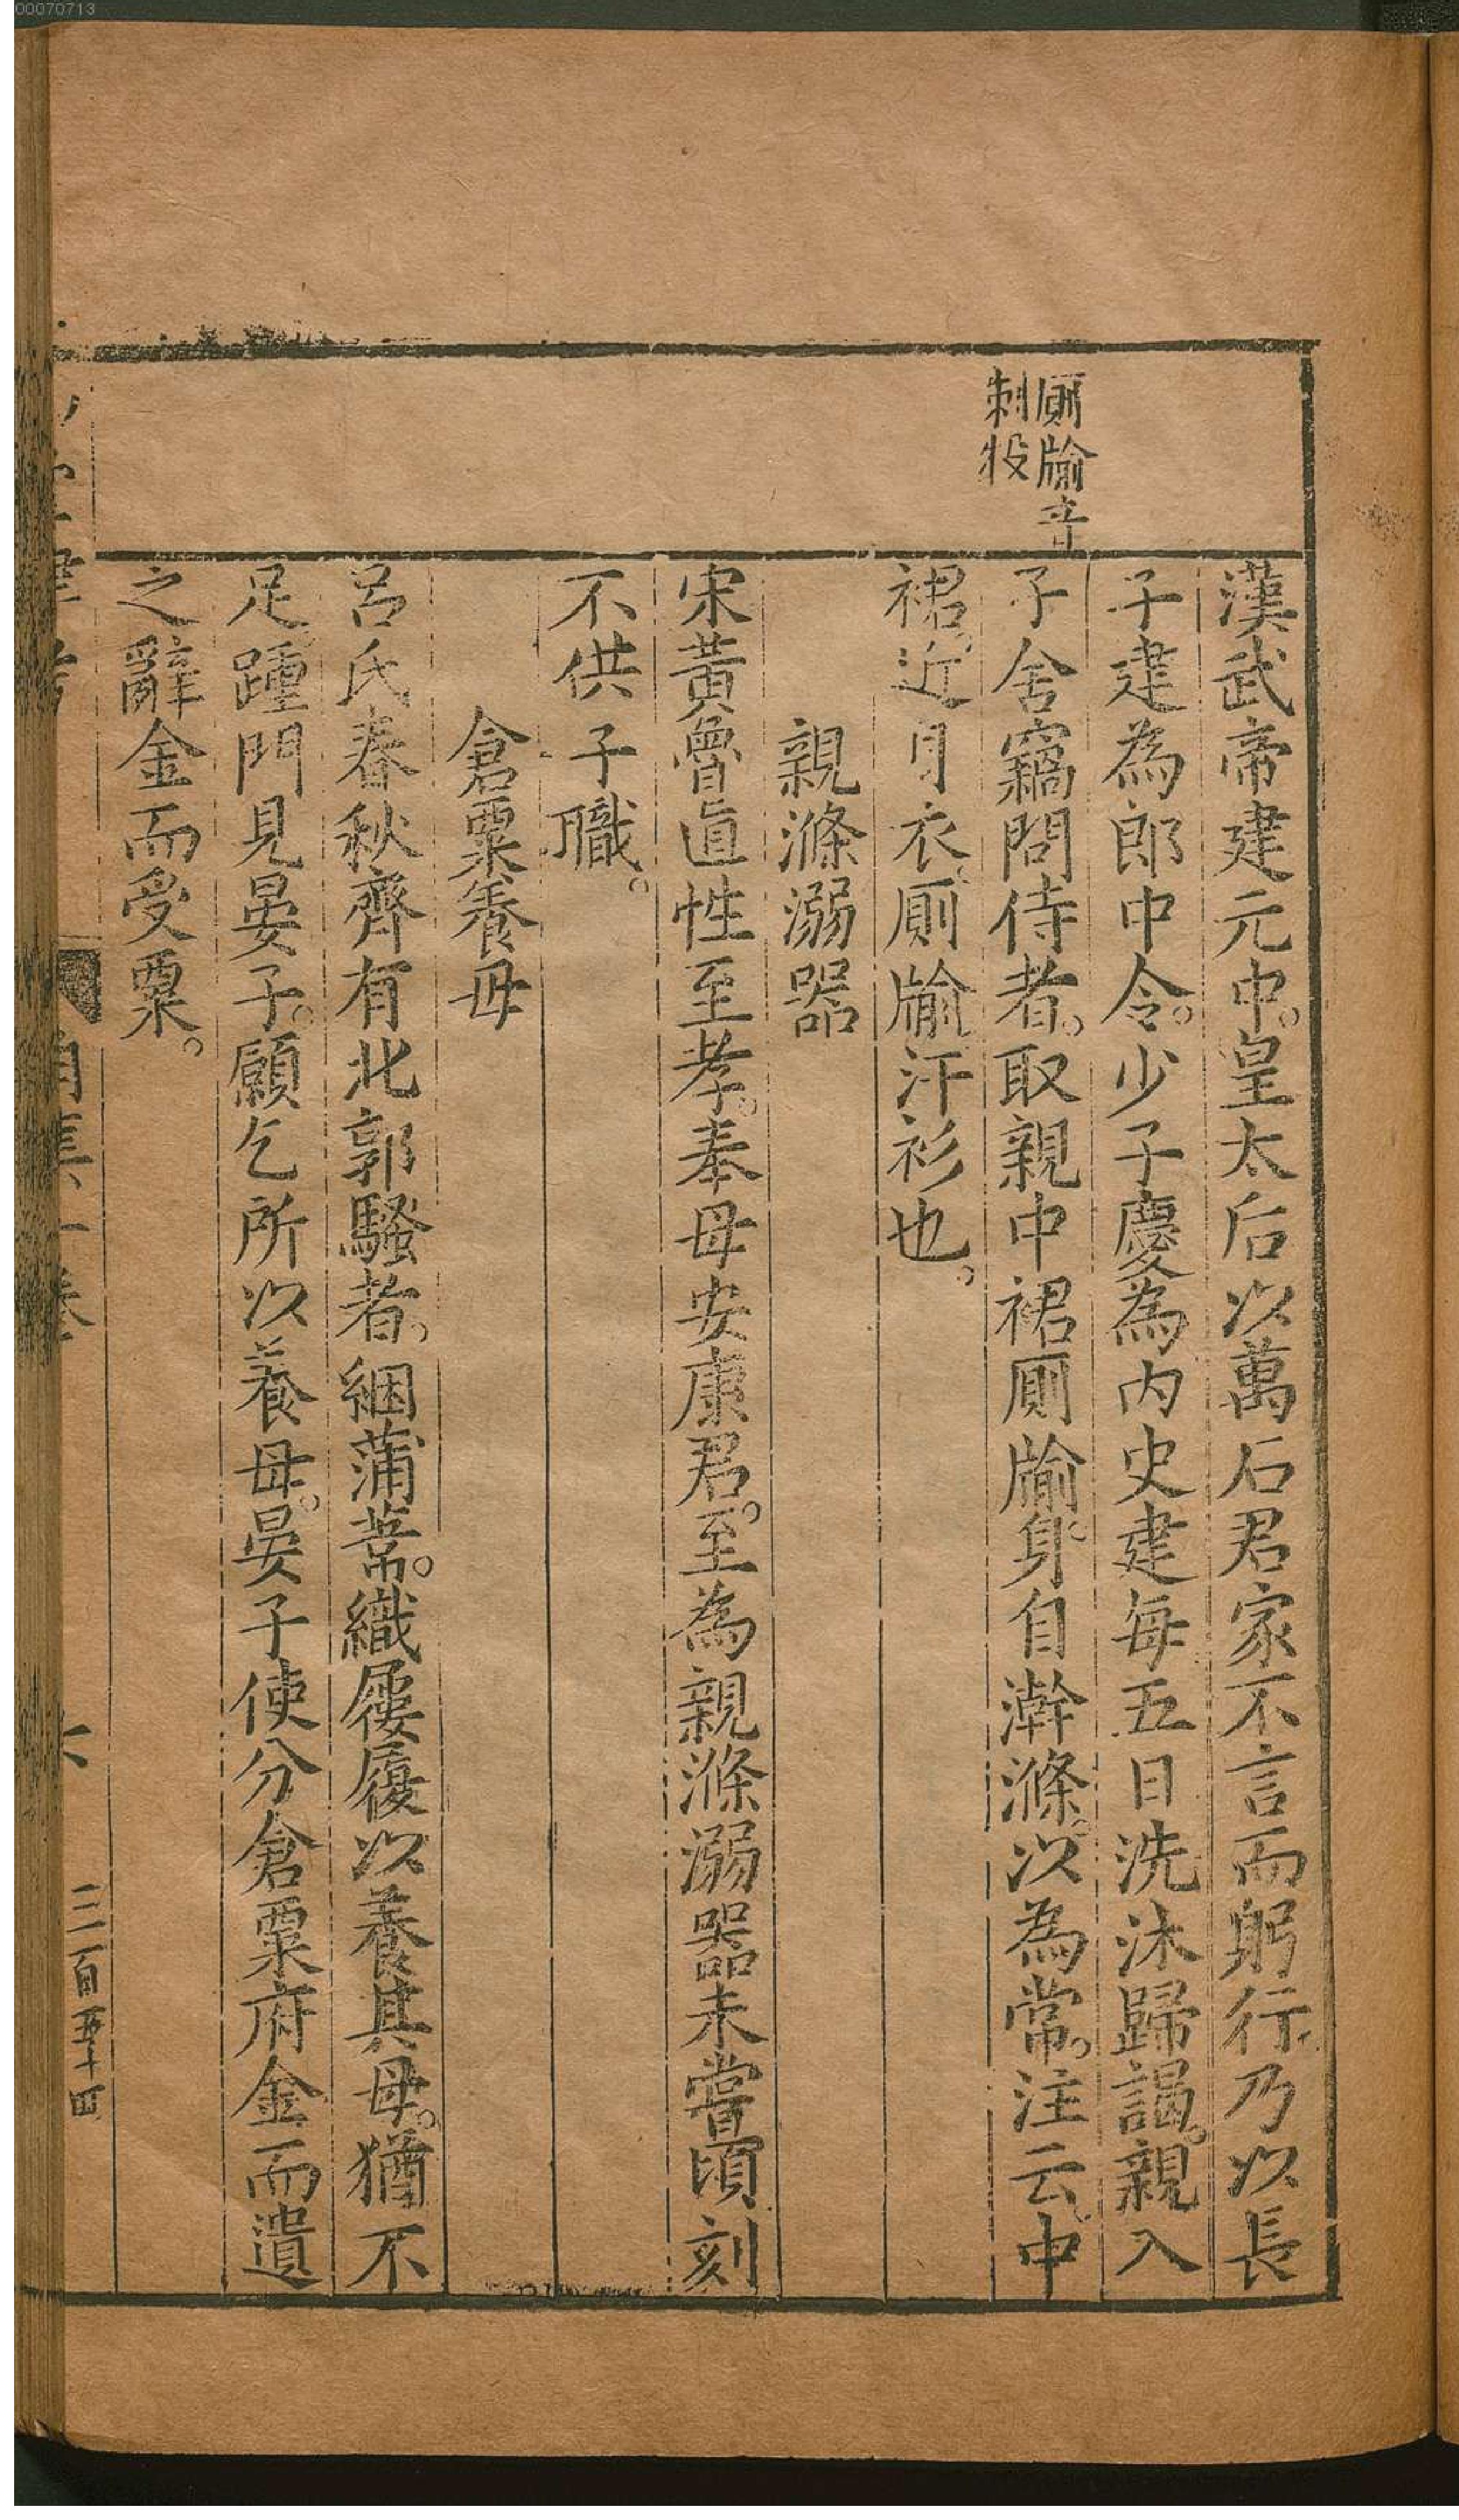 00070713
廁牏音
刺投
漢武帝建元中。皇太后以萬石君家不言而躬行。乃以長
子建為郎中令。少子慶為內史建每五日洗沐歸謁。親入
子舍竊問侍者。取親中裙廁牏。身自澣滌。以為常。注云。中
裙。近身衣。廁牏。汗衫也。
親滌溺器
宋黃魯直性至孝。奉母安康君。至為親滌溺器未嘗頃刻
不供子職。
倉粟養母
呂氏春秋齊有北郭騷者。綑蒲葦。織屨履以養其母。猶不
足踵門見晏子。願乞所以養母。晏子使分倉粟府金而遺
之辭金而受粟。
六
三百五十四